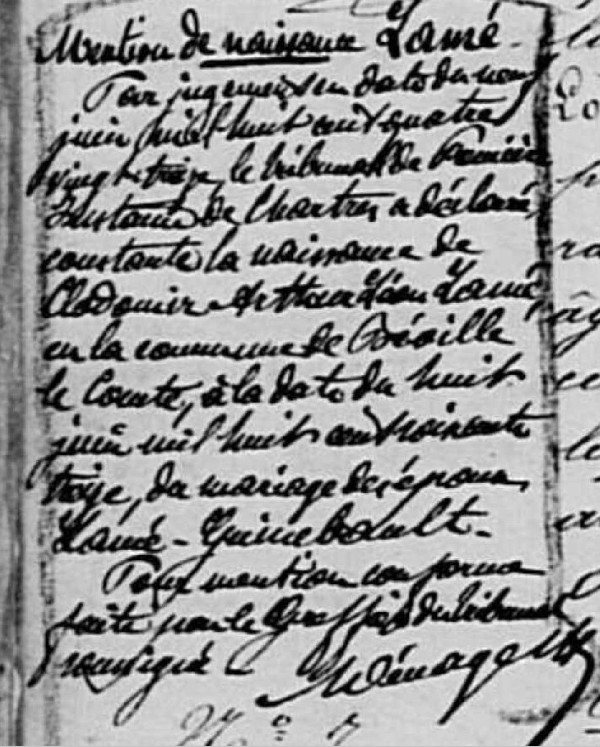 Mention de naissance Lamé.
Par jugement en date du neuf
juin mil huit cent quatre
vingt treize, le tribunal de Première
Instance de Chartres a déclaré
constante la naissance de
Clodomir Arthur Léon Lamé
en la commune de Bréville
le Comte, à la date du huit
juin mil huit cent soixante
treize, du mariage des époux
Lamé - Guinebault.
Pour mention conforme
faite par le Greffier du tribunal
soussigné.
Ménager
N° 7